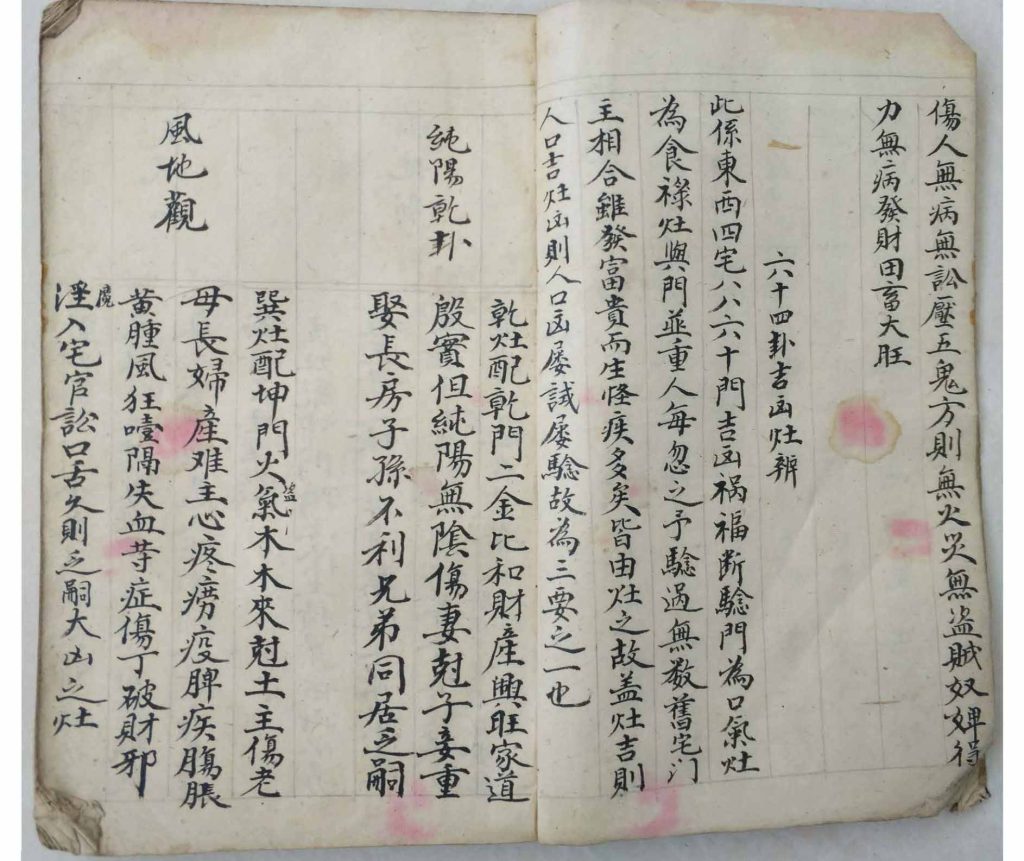 傷人無病無訟壓五鬼方則無火災無盜賊奴婢得
力無病發財田畜大旺
六十四卦吉凶灶辨
此係東西四宅八八六十門吉凶祸福断騐門為口氣灶
為食祿灶與門並重人每忽之予騐過無數舊宅门
主相合雖發富貴而生怪疾多矣皆由灶之故盖灶吉則
人口吉灶凶則人口凶屡試屡騐故為三要之一也
純陽乾卦
乾灶配乾門二金比和財產興旺家道
殷實但純陽無陰傷妻尅子妾重
娶長房子孫不利兄弟同居乏嗣
風地觀
巽灶配坤門火氣盜木木來尅土主傷老
母長婦產难主心疼痨疫脾疾膓脹
黄腫風狂噎隔失血等症傷丁破財邪
魔
淫入宅官訟口舌久則乏嗣大凶之灶